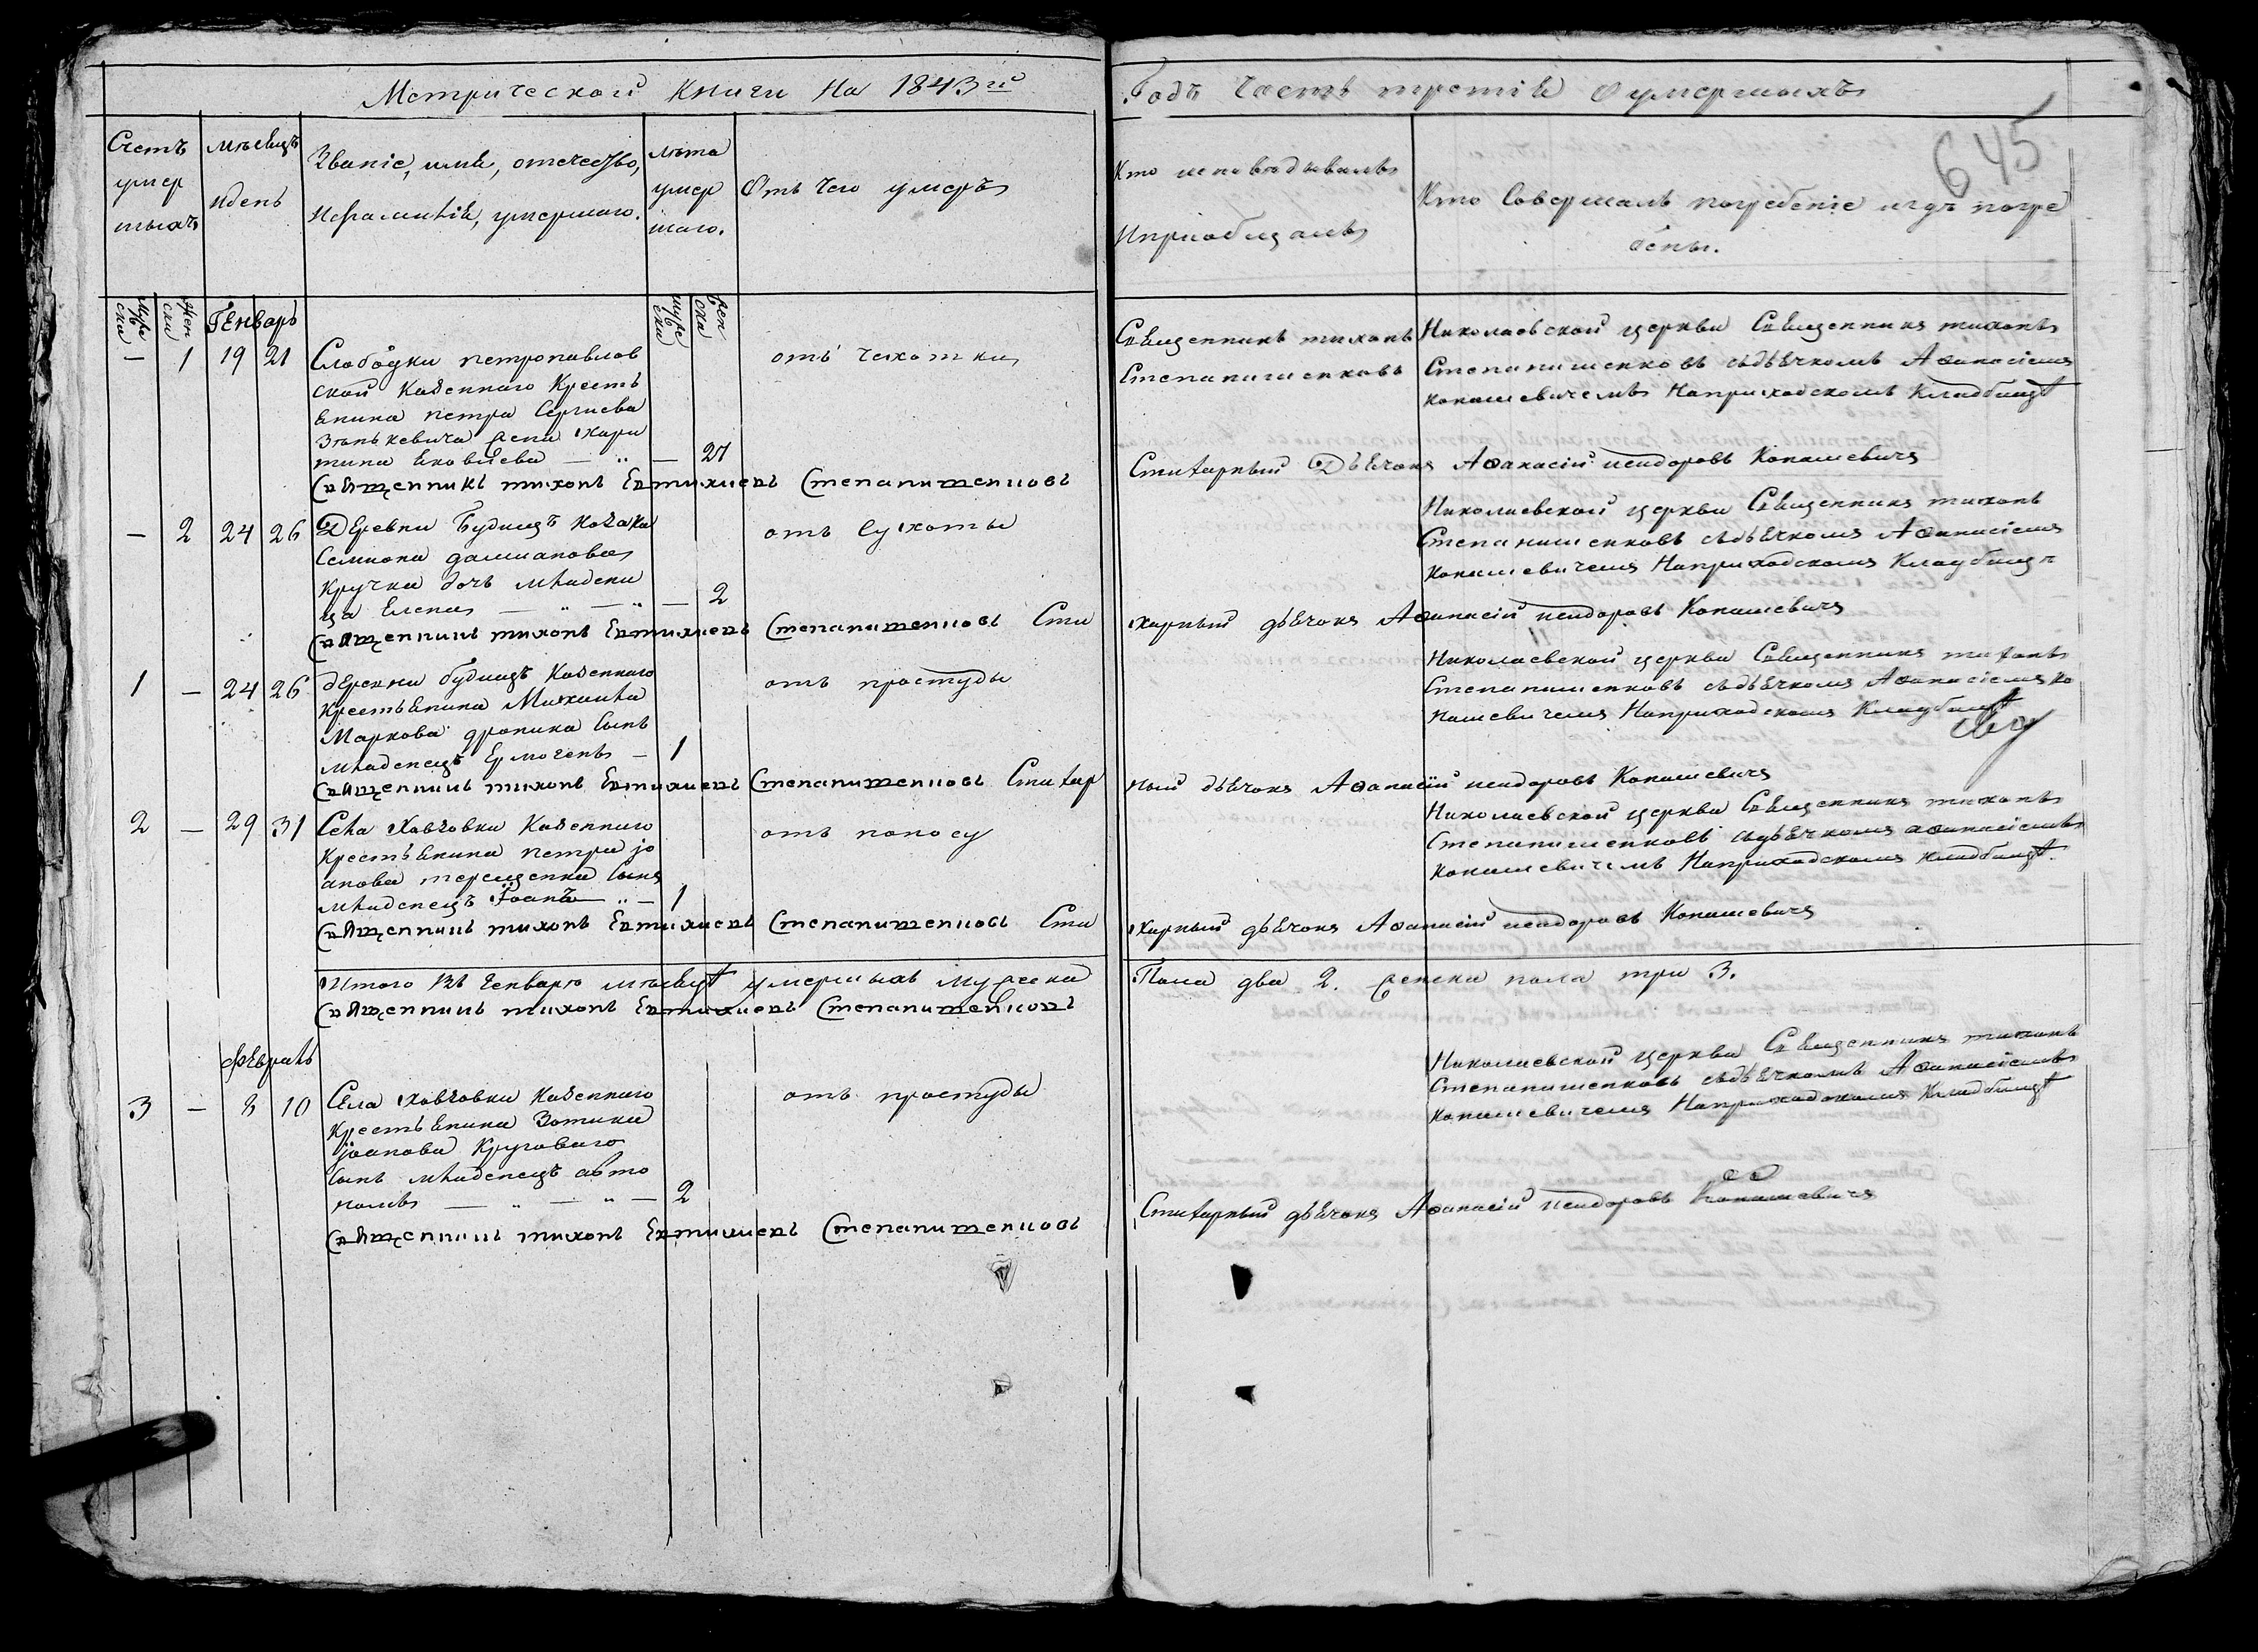 Метрической Книги На 1843й
Годъ Часть третія О умершыхъ
645
Счетъ умер шыхъ
мѣсяцъ и день
Званіе, имя, отечество, И фамилія, умершаго.
лѣта умер шаго.
Отъ Чего умеръ
Кто исповѣдывалъ И приобщалъ
Кто Совершалъ погребеніе и гдѣ погре бены.
муже ска
жен ска
Генварь
муже ска
жен ска
— 1 19 21
Слободки петропавлов
ской Казеннаго Кресть
янина петра Сергиева
Зенькевича жена Хари
тина Яковлева — „ — 27
отъ чахотки
Священникъ тихонъ
Степанишенковъ
Николаевской церкви Священникъ тихонъ
Степанишенковъ съ дьячкомъ Афанасіемъ
Конашевичемъ На приходскомъ Кладбищѣ
Священникъ тихонъ Евтихиевъ Степанишенковъ
Стихарный Дьячокъ Афанасій исидоровъ Конашевичъ
— 2 24 26
Деревни Будищъ Козака
Семиона дамианова
Кручка дочь младени
ца Елена — „ — „ — 2
отъ Сухоты
Николаевской церкви Священникъ тихонъ
Степанишенковъ съ дьячкомъ Афанасіемъ
Конашевичемъ На приходскомъ Кладбищѣ
Священникъ тихонъ Евтихиевъ Степанишенковъ Сти
харный дьячокъ Афанасій исидоровъ Конашевичъ
1 — 24 26
деревни будищъ Казеннаго
Крестьянина Михаила
Маркова дроника Сынъ
младенецъ Ермогенъ — 1
отъ простуды
Николаевской церкви Священникъ тихонъ
Степанишенковъ съ дьячкомъ Афанасіемъ Ко
нашевичемъ На приходскомъ Кладбищѣ
Священникъ тихонъ Евтихиевъ Степанишенковъ Стихар
ный дьячокъ Афанасій исидоровъ Конашевичъ
2 — 29 31
Села Ховзовки Казеннаго
Крестьянина петра јо
анова терещенка Сынъ
младенецъ Іоанъ — „ — 1
отъ поносу
Николаевской церкви Священникъ тихонъ
Степанишенковъ съ дьячкомъ афанасіемъ
Конашевичемъ На приходскомъ кладбищѣ.
Священникъ тихонъ Евтихиевъ Степанишенковъ Сти
харный дьячокъ Афанасій исидоровъ Конашевичъ
Итого Въ Генварю мѣсяцѣ умершыхъ мужеска
Пола два 2. женска пола три 3.
Священникъ тихонъ Евтихиевъ Степанишенковъ
Февраль
3 — 8 10
Села Ховзовки Казеннаго
Крестьянина Зотика
јоанова Круговаго
Сынъ младенецъ авто
номъ — „ — „ — 2
отъ простуды
Николаевской церкви Священникъ тихонъ
Степанишенковъ съ дьячкомъ Афанасіемъ
Конашевичемъ На приходскомъ Кладбищѣ
Священникъ тихонъ Евтихиевъ Степанишенковъ
Стихарный дьячокъ Афанасій исидоровъ Конашевичъ